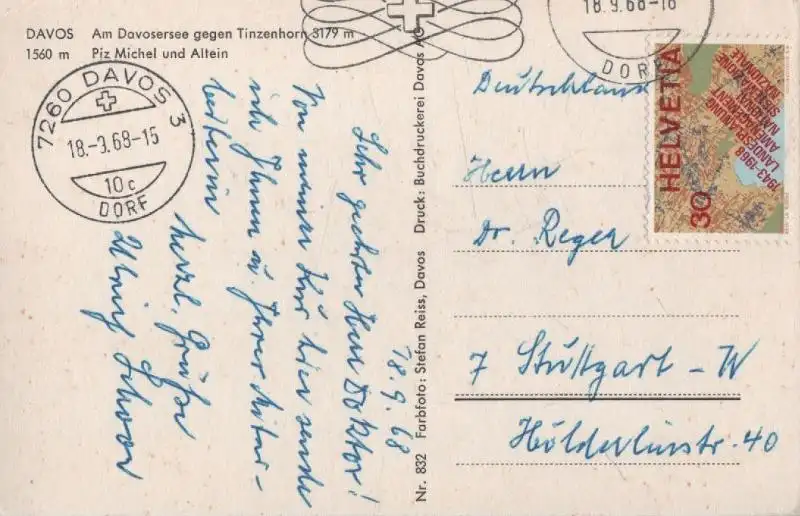 DAVOS Am Davosersee gegen Tinzenhorn 3179 m
1560 m Piz Michel und Altein
7260 DAVOS 3
18.-3.68-15
10c
DORF
18.9.68-18
DORF
HELVETIA
30
1943-1968
LANDESPLANUNG
AMENAGEMENT
NATIONAL
Nr. 832 Farbfoto: Stefan Reiss, Davos Druck: Buchdruckerei Davos AG
18.9.68
Sehr geehrter Herr Doktor!
Von meiner Kur hier sende
ich Ihnen u. Ihrer Mitar-
beiterin
herzl. Grüße
Ulrich
Deutschland
Herrn
Dr. Reger
7 Stuttgart-W
Hölderlinstr. 40